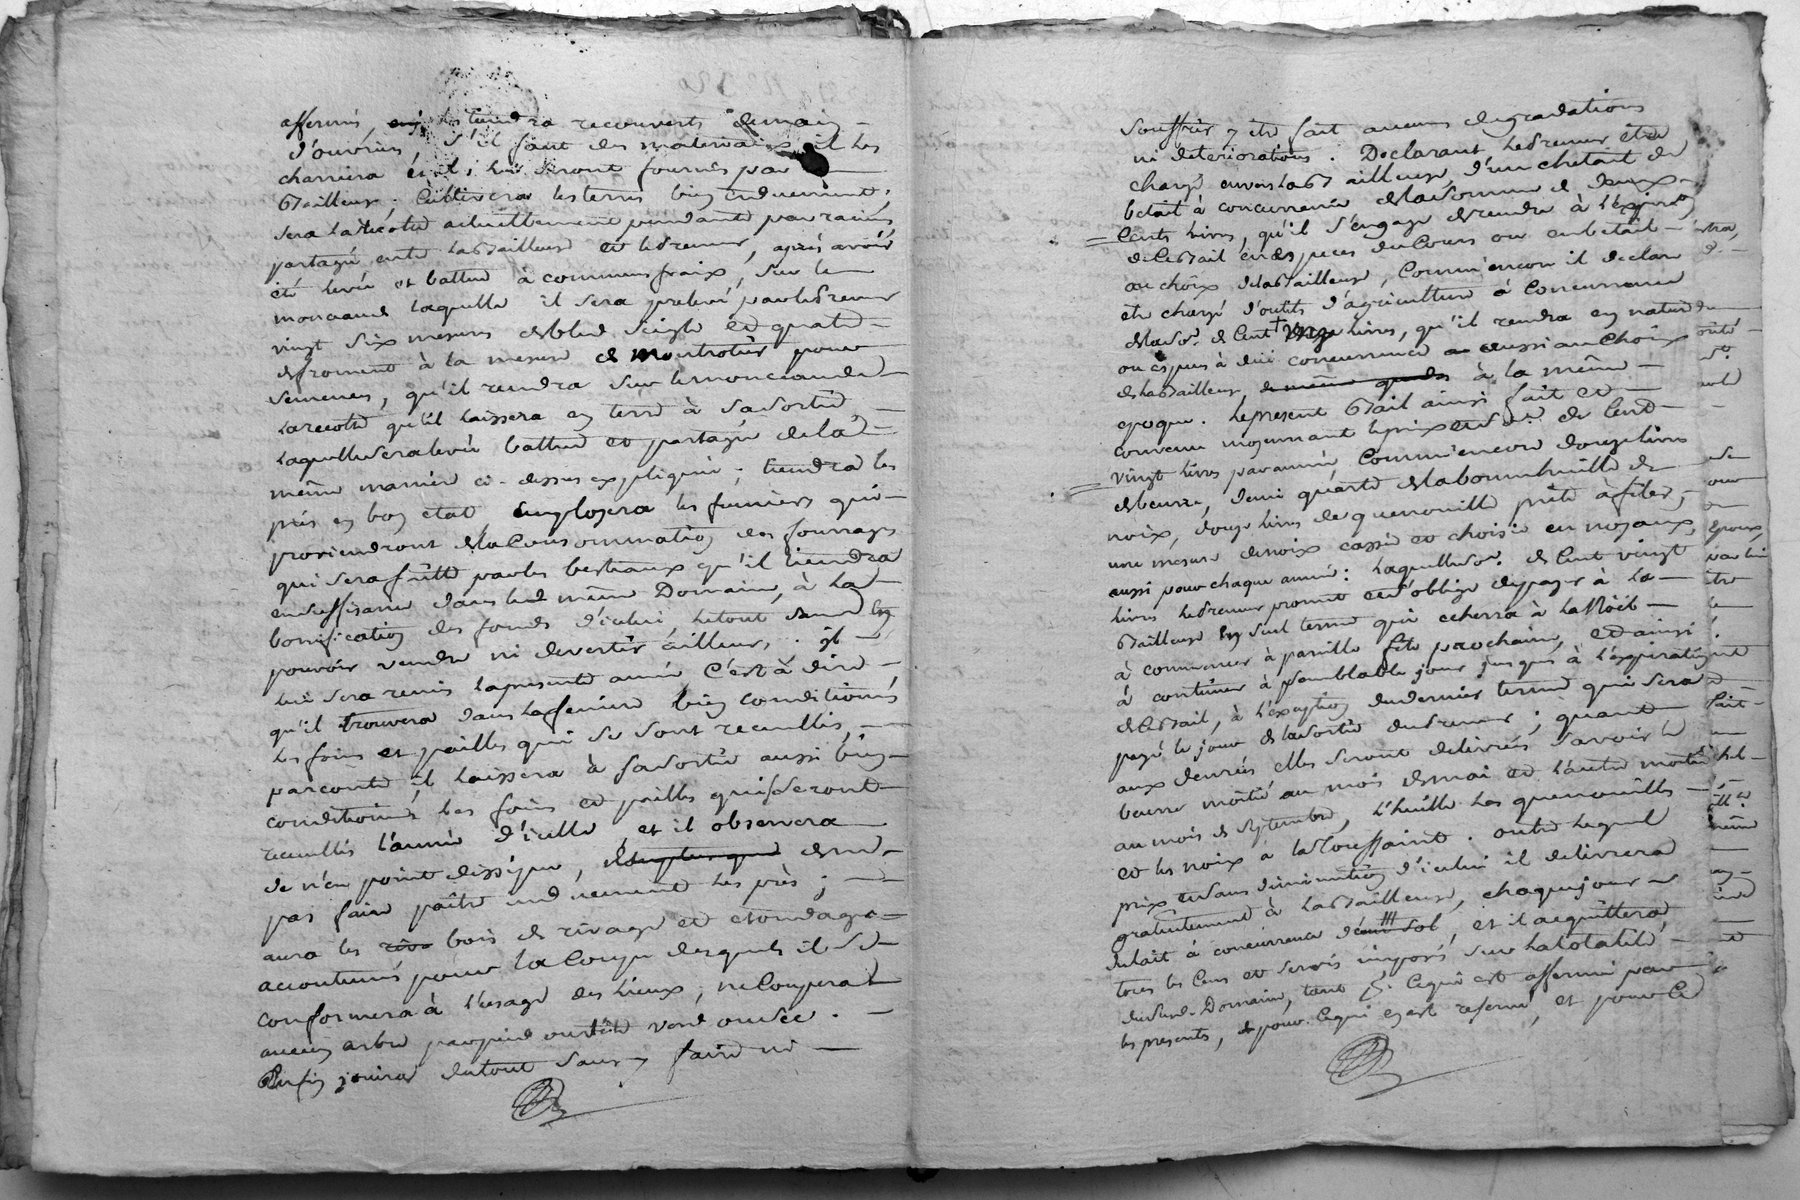 affermés, les tiendra recouverts de main
d'ouvriers, s'il faut des materiaux il les
charriera et ils lui seront fournis par
Bailleuse. Cultivera les terres bien et duement,
sera la récolte actuellement pendante par racines
partagée entre la Bailleuse et le preneur, après avoir
été levée et battue à communs frais, sur le
monceau de laquelle il sera prelevé par le preneur
vingt six mesures de bled seigle et quatre
de froment à la mesure de pour
semences, qu'il rendra sur le monceau de
la recolte qu'il laissera en terre à sa sortie
laquelle sera levée battue et partagée de la
même maniere ci-dessus expliquée. tiendra les
prés en bon etat Employera les fumiers qui
proviendront de la Consommation des fourrages
qui sera faitte par les bestiaux qu'il tiendra
en suffisance dans led même Domaine, à la
bonification des fonds d'icelui, le tout sans en
pouvoir vendre ni divertir ailleurs, il
lui sera remis la presente année C'est à dire
qu'il trouvera dans la feniere bien conditionnés
les foins et pailles qui se sont recueillis,
par contre, il laissera à sa sortie aussi bien
conditionnés les foins et pailles qui seront
recueillis l'année d'icelle, et il observera
de n'en point dissiper, de ne
pas faire paître induement les près;
aura les rive bois de rivage et etondage
accoutumés pour la Coupe desquels il se
conformera à l'usage des lieux, ne Coupera
aucun arbre par pied ou tête verd ou sec.
Enfin jouira du tout sans y faire ni
souffrir y etre fait aucunes degradations
ni deteriorations. Declarant le preneur être
chargé envers la Bailleuse d'un cheptail de
betail à concurrence de la somme de deux
Cents livres, qu'il s'engage de rendre à l'expiration
de ce Bail en especes de Cours ou en betail
au choix de la Bailleuse, Comm'encore il declare
etre chargé d'outils d'agriculture à Concurrence
de la so.e de Cent livres, qu'il rendra en nature
ou especes à due concurrence aussi au Choix
de la Bailleuse, à la même
epoque. Le present Bail ainsi fait et
convenu moyennant le prix et so.e de Cent
vingt livres par année, Comm'encore douze livres
de beurre, demi quarte de la bonne huille de
noix, douze livres de quenouille prête à filer,
une mesure de noix cassée et choisie en noyaux,
aussi pour chaque année: laquelle so.e de Cent vingt
livres le preneur promet et s'oblige de payer à la
Bailleuse en seul terme qui echerra à la Noël
à commencer à pareille fête prochaine, et ainsi
à continuer à semblable jour jusques à l'expiration
de ce Bail, à l'exception du dernier terme qui sera
payé le jour de la sortie du preneur; quant
aux denrées elles seront delivrées savoir le
beurre moitié au mois de mai et l'autre moitié
au mois de septembre, l'huille les quenouilles
et les noix à la Toussaint. outre lequel
prix et sans diminution d'icelui il delivrera
gratuitement à la Bailleuse, chaque jour
du lait à concurrence d' sol, et il acquittera
tous les Cens et servis imposés sur la totalité
du susd. Domaine, tant p. Ce qui est affermé par
les presents, et pour Ce qui en est reservé, et pour Ce